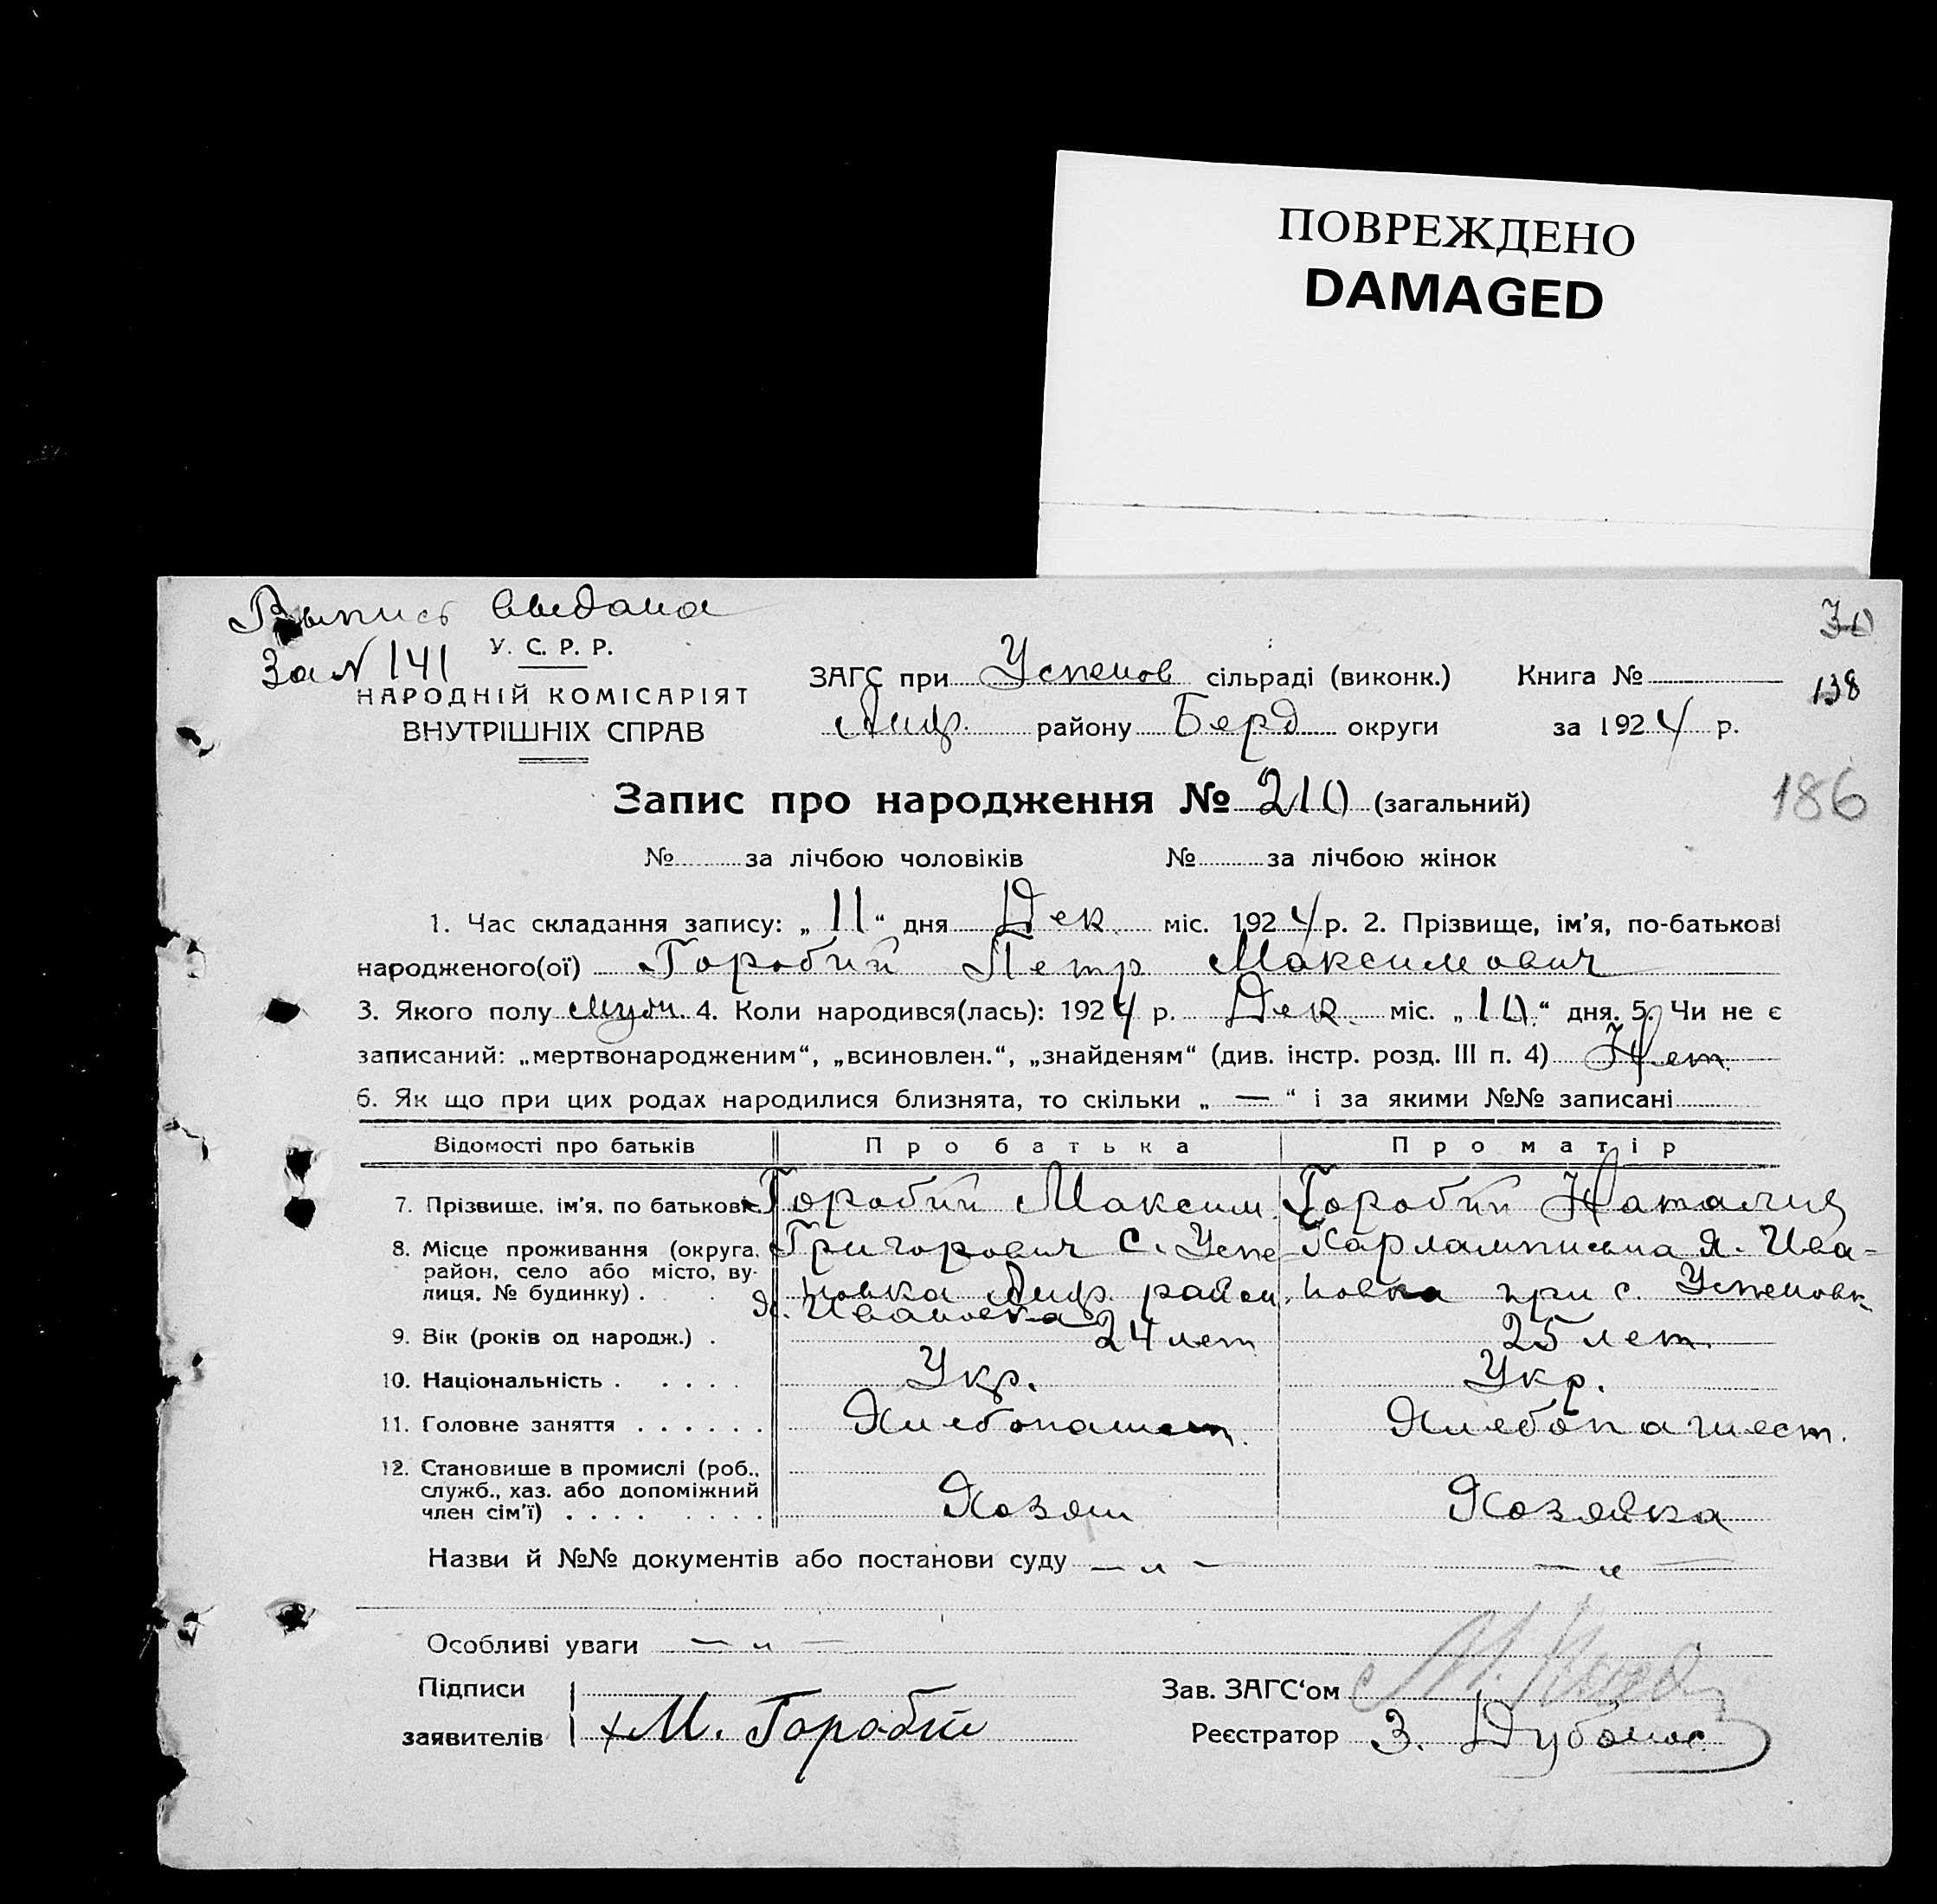 ПОВРЕЖДЕНО
DAMAGED
Выпись выдана
За № 141
У. С. Р. Р.
НАРОДНІЙ КОМІСАРІЯТ
ВНУТРІШНІХ СПРАВ
ЗАГС при Успенов сільраді (виконк.) Книга №
30
138
району Берд округи за 1924 р.
186
Запис про народження № 210 (загальний)
№ за лічбою чоловіків № за лічбою жінок
1. Час складання запису: „ 11 “ дня Дек. міс. 1924 р. 2. Прізвище, ім'я, по-батькові
народженого(ої) Горобий Петр Максимович
3. Якого полу муж. 4. Коли народився(лась): 1924 р. Дек. міс. „ 10 “ дня. 5. Чи не є
записаний: „мертвонародженим“, „всиновлен.“, „знайденям“ (див. інстр. розд. III п. 4) Нет
6. Як що при цих родах народилися близнята, то скільки „ — “ і за якими №№ записані
Відомості про батьків Про батька Про матір
7. Прізвище, ім'я, по батькові. Горобий Максим Горобий Наталия
8. Місце проживання (округа, Григорович с. Успе- Харлампиевна я. Ива-
район, село або місто, ву-
лиця, № будинку) . новка район. новка при с. Успеновк
Ивановка
9. Вік (років од народж.) . 24 лет 25 лет.
10. Національність . . . . . Укр. Укр.
11. Головне заняття . . . . . . Хлебопашест. Хлебопашест.
12. Становище в промислі (роб.,
служб., хаз. або допоміжний
член сім'ї) . . . . . . . . Хозяин Хозяйка
Назви й №№ документів або постанови суду — „ — — „ —
Особливі уваги — „ —
Підписи
заявителів М. Горобий
Зав. ЗАГС'ом
Реєстратор З. Дубонос